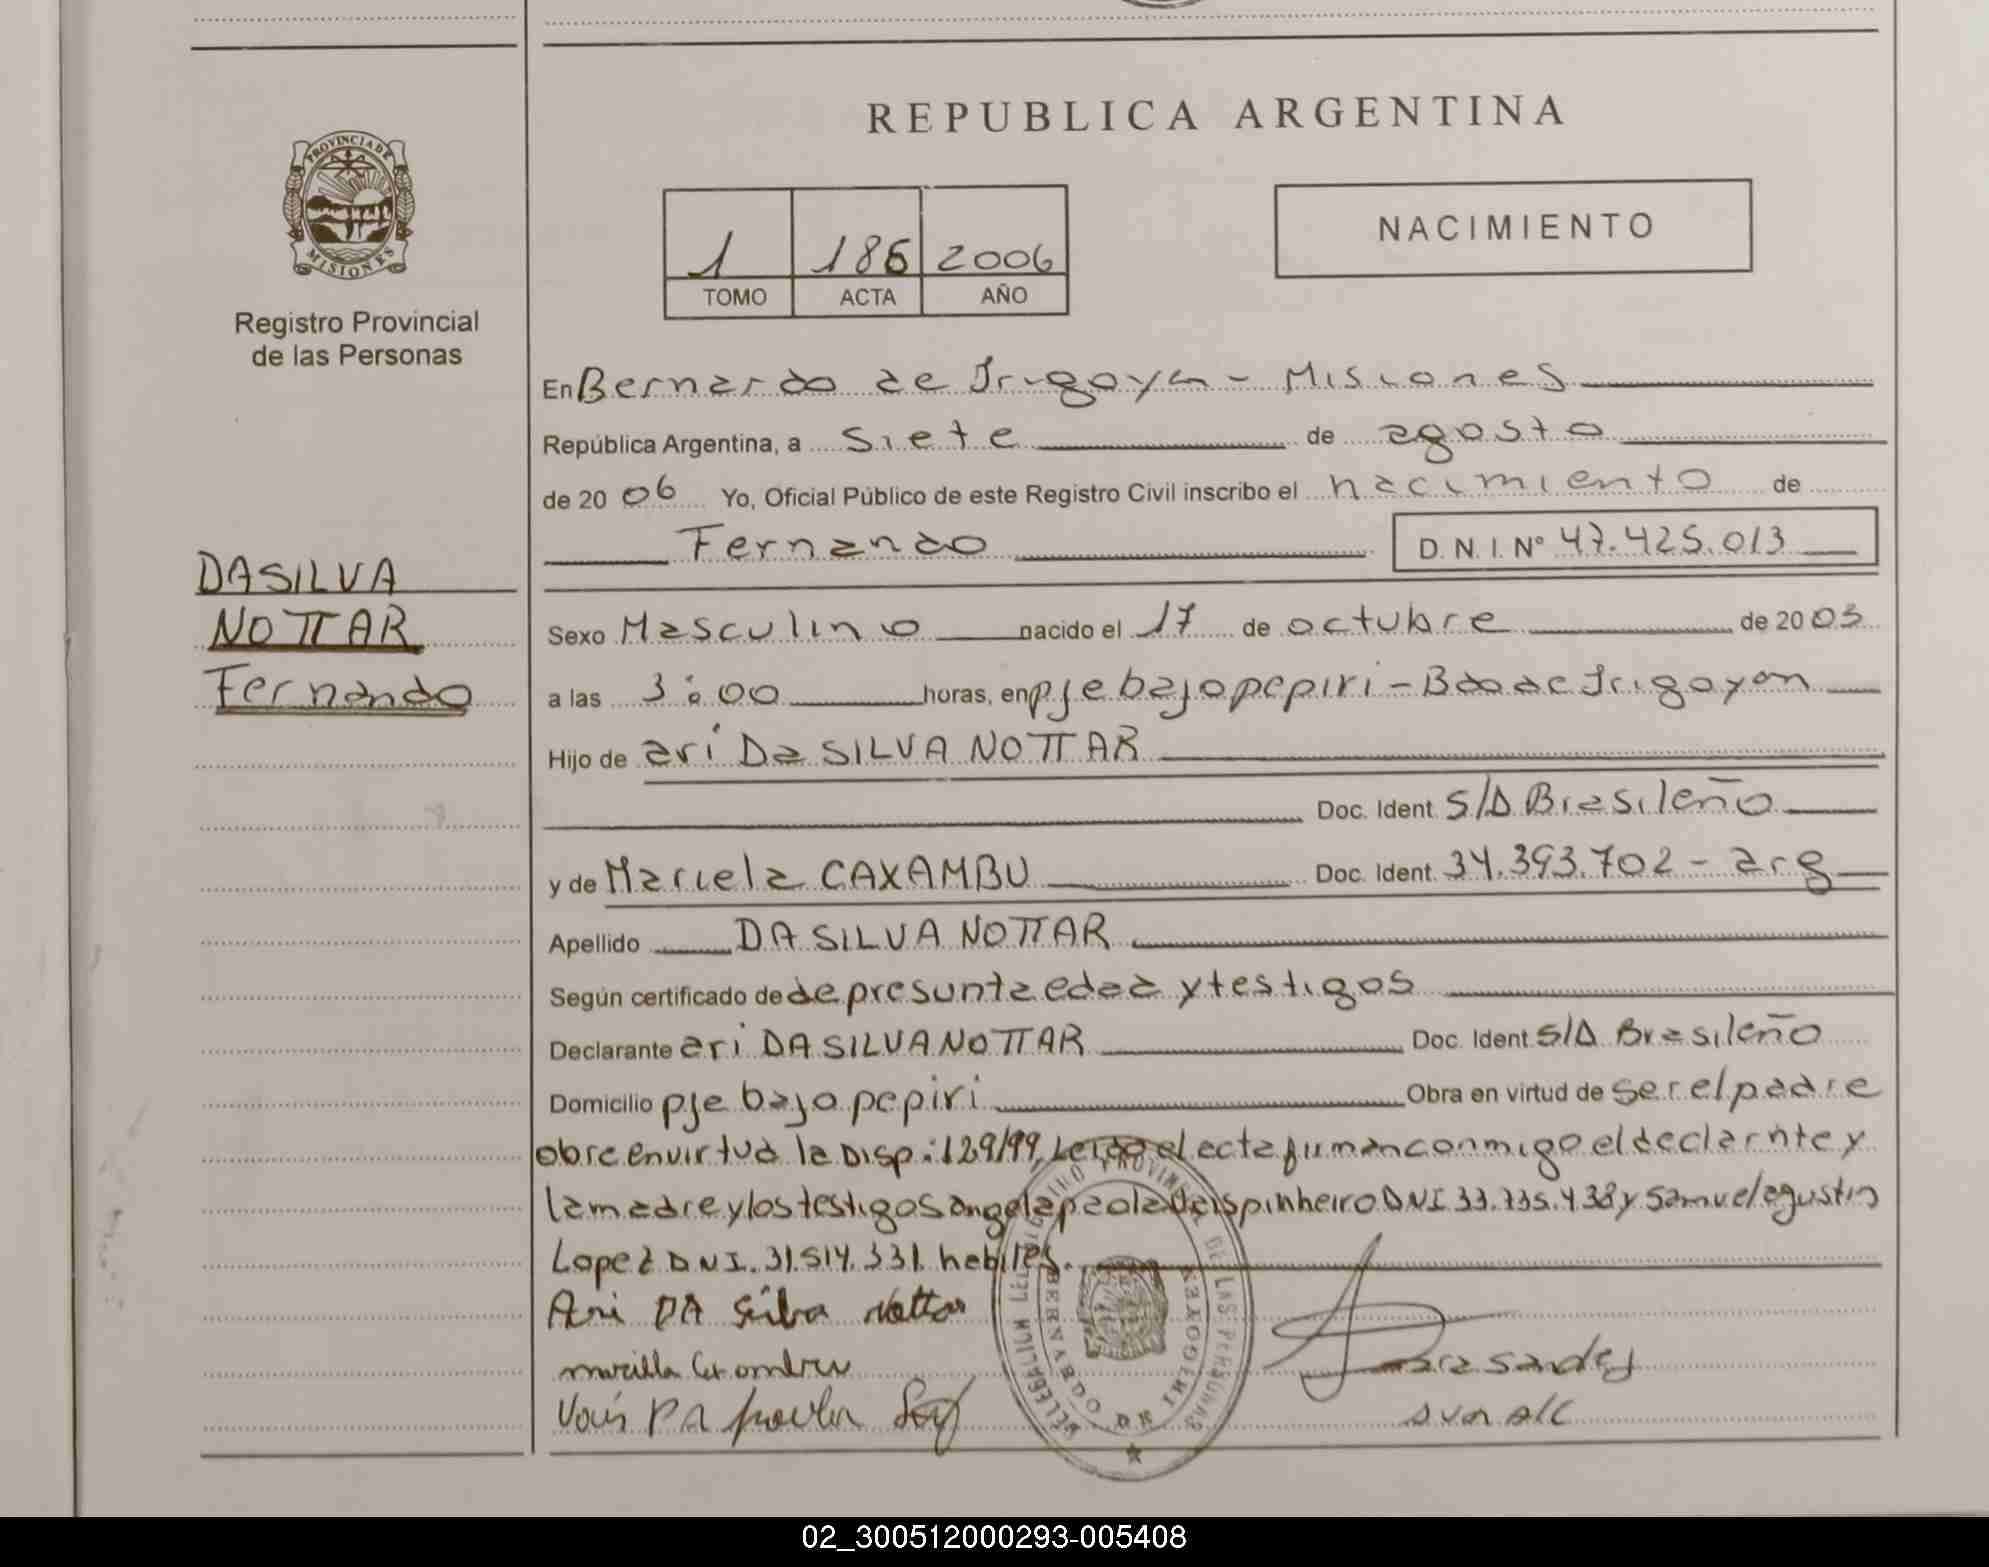 REPUBLICA ARGENTINA
PROVINCIA DE
MISIONES
Registro Provincial
de las Personas
DASILVA
NOTTAR
Fernando
1 186 2006
TOMO ACTA AÑO
NACIMIENTO
En Bernardo de Irigoyen - Misiones
República Argentina, a siete de agosto
de 2006 Yo, Oficial Público de este Registro Civil inscribo el nacimiento de
Fernando D.N.I. Nº 47.425.013
Sexo Masculino nacido el 17 de octubre de 2003
a las 3:00 horas, en pje bajo pepiri - Bdo de Irigoyen
Hijo de ari Da SILVA NOTTAR
Doc. Ident. S/D Brasileño
y de Mariela CAXAMBU Doc. Ident. 34.393.702 - arg
Apellido DA SILVA NOTTAR
Según certificado de de presunta edad y testigos
Declarante ari DA SILVA NOTTAR Doc. Ident. S/D Brasileño
Domicilio pje bajo pepiri Obra en virtud de ser el padre
obre en virtud la Disp: 129/99, Leida el acta firman conmigo el declarnte y
la madre y los testigos angela paola pinheiro DNI 33.735.438 y Samuel agustin
Lopez DNI. 31.514.331 habiles.
Ari DA Silva Nottar
DE LAS PERSONAS
BERNARDO DE IRIGOYEN
02_300512000293-005408